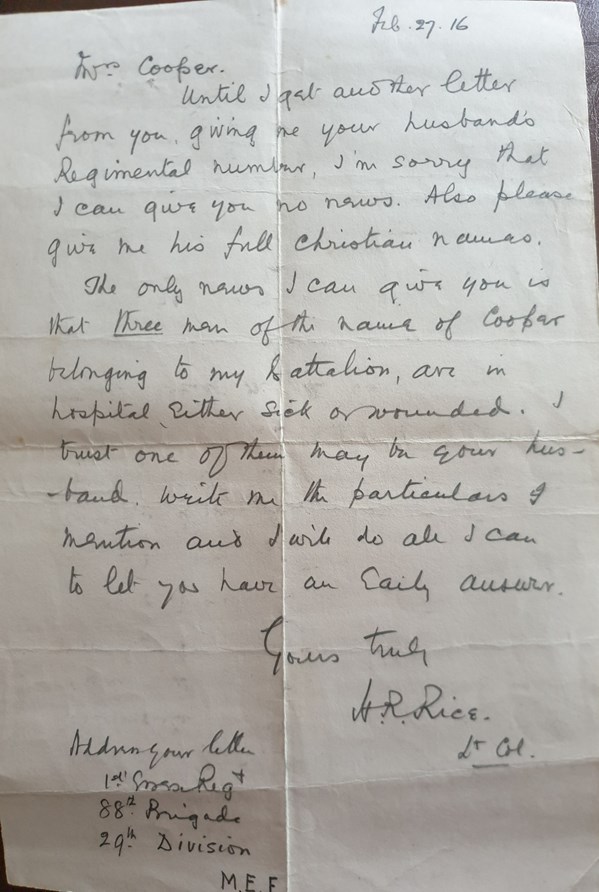 Feb. 27. 16
Mrs Cooper.
Until I get another letter
from you, giving me your husband's
Regimental number, I'm sorry that
I can give you no news. Also please
give me his full Christian names.
The only news I can give you is
that three men of the name of Cooper
belonging to my battalion, are in
hospital, either sick or wounded. I
trust one of them may be your hus-
-band. Write me the particulars I
mention and I will do all I can
to let you have an early answer.
Yours truly
H.R. Rice.
Lt Col.
Address your letter
1st Essex Regt
88th Brigade
29th Division
M.E.F